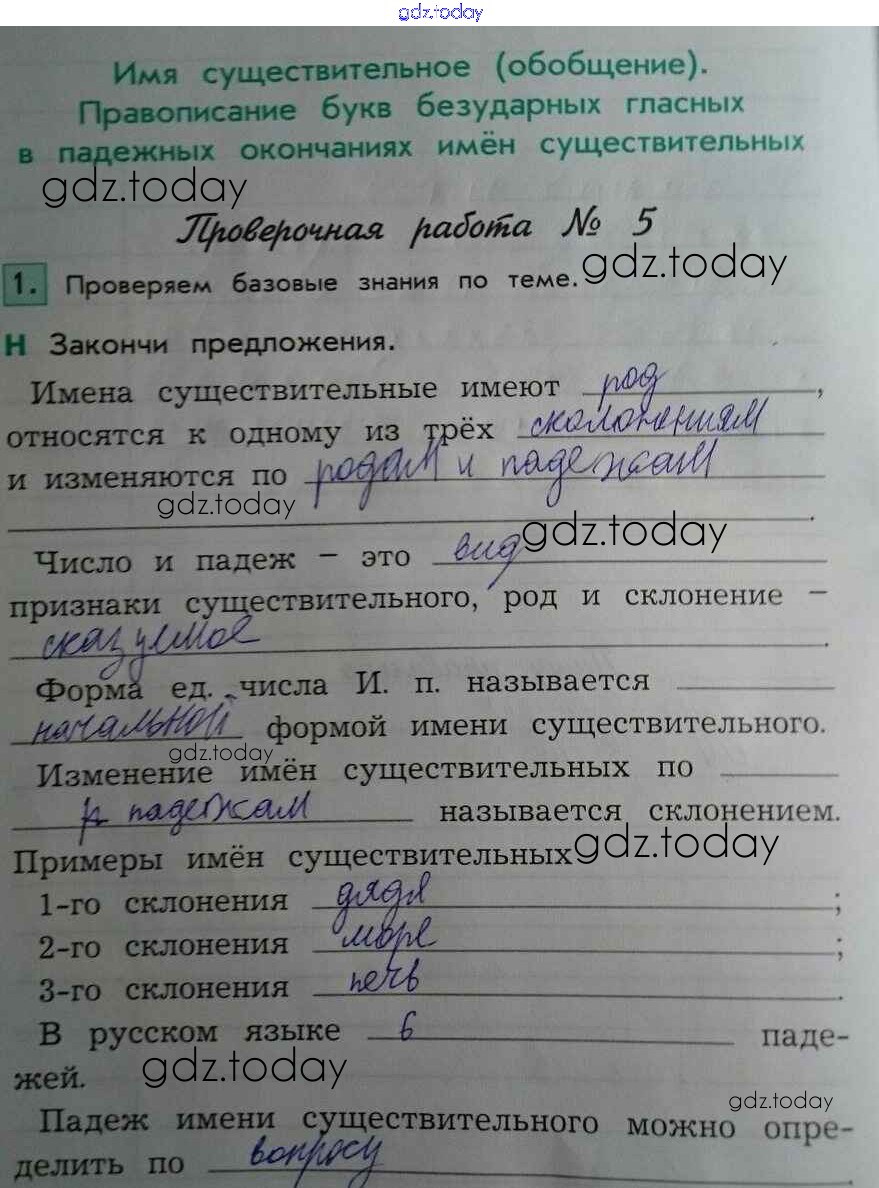 gdz.today
Имя существительное (обобщение).
Правописание букв безударных гласных
в падежных окончаниях имён существительных
gdz.today
Проверочная работа № 5
1. Проверяем базовые знания по теме. gdz.today
Н Закончи предложения.
Имена существительные имеют род,
относятся к одному из трёх сколонениям
и изменяются по родам и падежам
gdz.today gdz.today .
Число и падеж – это вид
признаки существительного, род и склонение –
сказуемое.
Форма ед. числа И. п. называется
начальной формой имени существительного.
gdz.today
Изменение имён существительных по
падежам называется склонением.
Примеры имён существительных gdz.today
1-го склонения дядя;
2-го склонения море;
3-го склонения печь.
В русском языке 6 паде-
жей. gdz.today
gdz.today
Падеж имени существительного можно опре-
делить по вопросу.